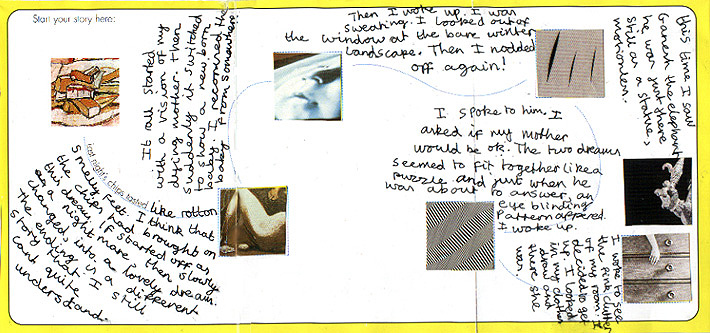 Start your story here:
last night's chips tasted like rotton
smelly feet. I think that
the chips had brought on
this dream. If started off as
as a night mare then slowly
changed, into a lovely dream.
The ending is a different
story that I still
cant quite
understand.
It all started
with a vision of my
dying mother. Then
suddenly it switched
to show a new born
baby. I reconized the
baby from somewhere.
Then I woke up. I was
sweating. I looked out of
the window at the bare winter
landscape. Then I nodded
off again!
this time I saw
Ganesh the elephant
he was just there
still as a statue,
motionless.
I spoke to him. I
asked if my mother
would be ok. The two dreams
seemed to fit together like a
puzzle and just when he
was about to answer, an
eye blinding
pattern appered.
I woke up.
I woke to see
the pink clutter
of my room. I
decided to get
up. I looked
in my clothes
draw and
there she
was.